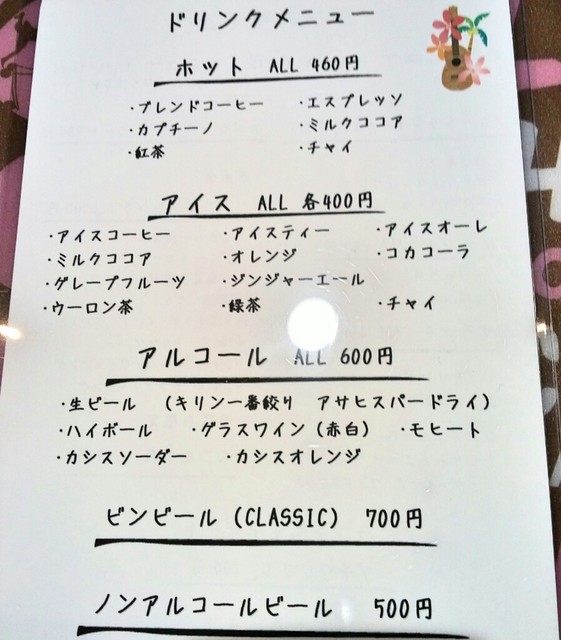 ドリンクメニュー
ホット ALL 460円
・ブレンドコーヒー ・エスプレッソ
・カプチーノ ・ミルクココア
・紅茶 ・チャイ
アイス ALL 各400円
・アイスコーヒー ・アイスティー ・アイスオーレ
・ミルクココア ・オレンジ ・コカコーラ
・グレープフルーツ ・ジンジャーエール
・ウーロン茶 ・緑茶 ・チャイ
アルコール ALL 600円
・生ビール (キリン一番絞り アサヒスパードライ)
・ハイボール ・グラスワイン(赤白) ・モヒート
・カシスソーダー ・カシスオレンジ
ビンビール(CLASSIC) 700円
ノンアルコールビール 500円